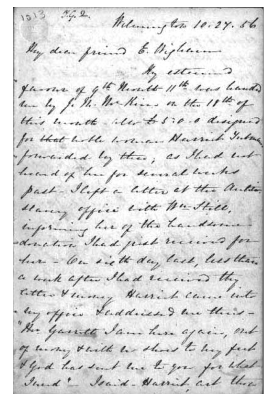 1013
T.G.2.
Wilmington 10.27.56
My dear friend E. Wigham
My esteemed
favour of 9th Month 11th was handed
me by J. M. McKim on the 18th of
this month also £ 5.0.0 designed
for that noble woman Harriet Tubman
forwarded by thee, as I had not
heard of her for several weeks
past. I left a letter at the Anti
slavery office with Wm Still,
informing her of the handsome
donation I had just received for
her - On sixth day last, less than
a week after I had received thy
letter & money Harriet came into
my office & addressed me thus -
Mr Garrett I am here again, out
of money & with no shoes to my feet
& God has sent me to you for what
I need - I said - Harriet, art thou